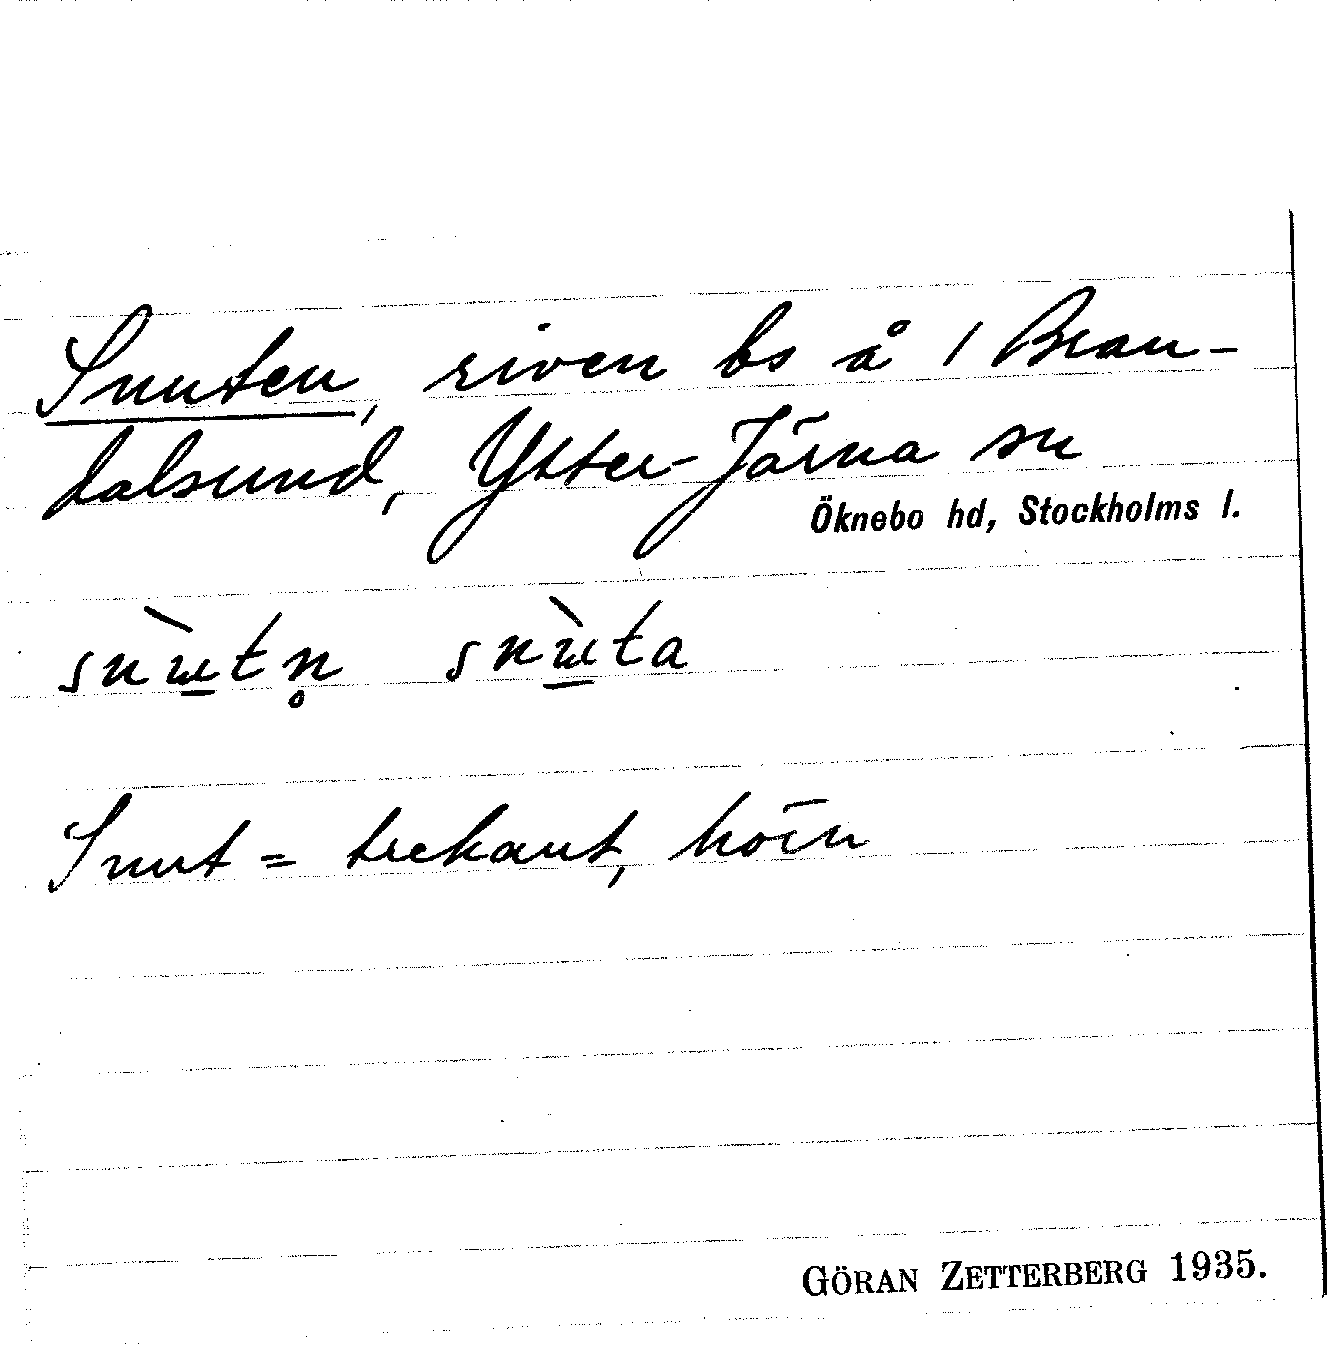 Snuten, riven bs å 1 Bran-
dalsund, Ytter-Järna sn
Öknebo hd, Stockholms l.
snɯ̀tn̥ snɯ̀ta
Snut = trekant, hörn
GÖRAN ZETTERBERG 1935.